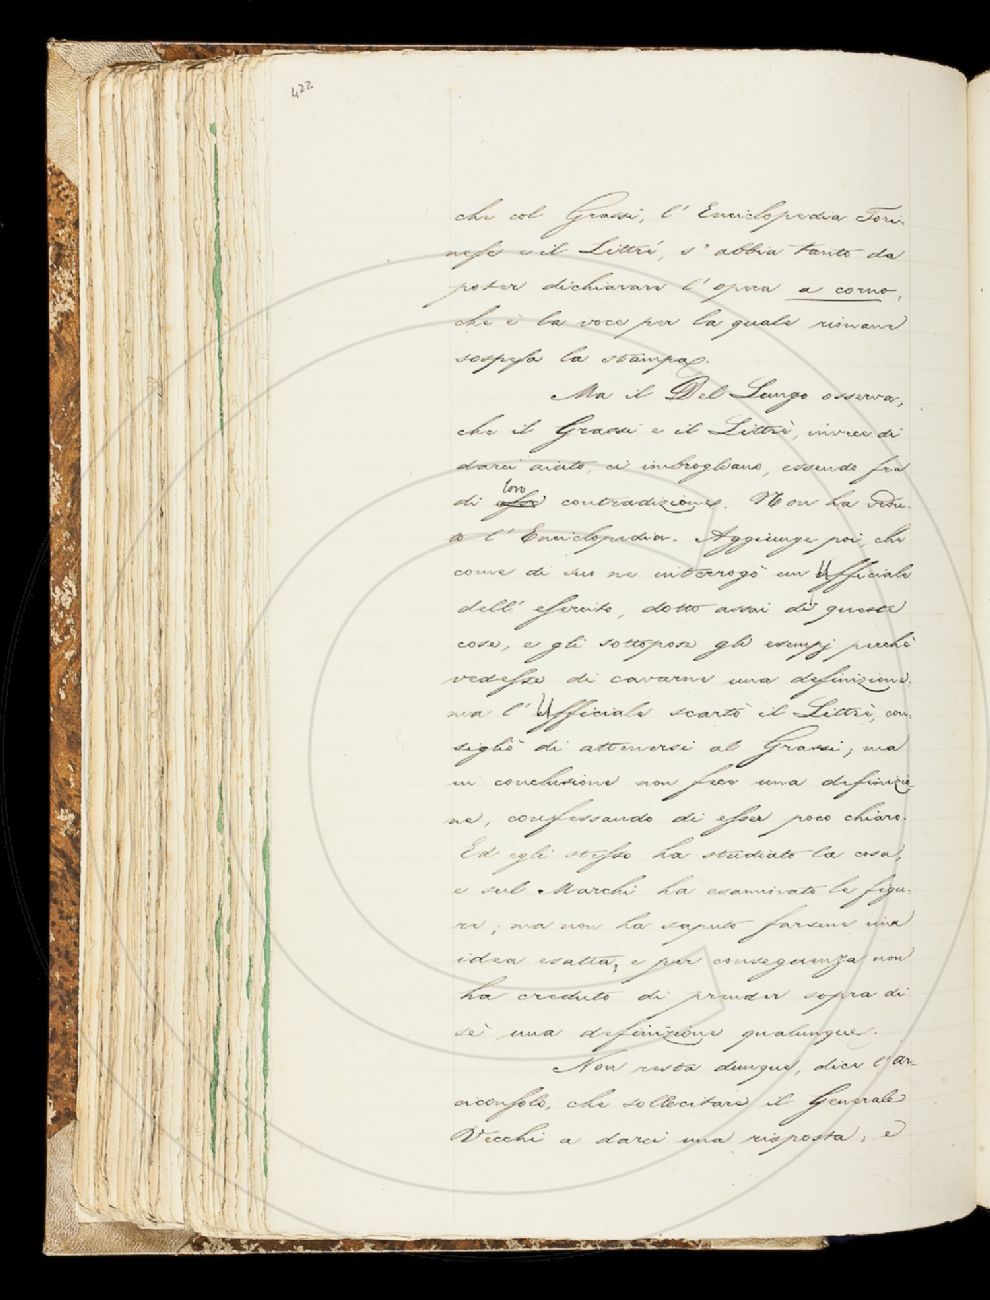 422
che col Grassi, l' Enciclopedia Tori-
nese e il Littré, s' abbia tanto da
poter dichiarare l' opera a corno,
che è la voce per la quale rimane
sospesa la stampa.
Ma il Del Lungo osserva,
che il Grassi e il Littrè, invece di
darci aiuto, ci imbrogliano, essendo fra
di loro contradizione. Non ha vedu-
to l' Enciclopedia. Aggiunge poi, che
come di suo ne interrogò un Ufficiale
dell' esercito, dotto assai di queste
cose, e gli sottopose gli esempj perchè
vedesse di cavarne una definizione;
ma l' Ufficiale scartò il Littrè, con-
sigliò di attenersi al Grassi; ma
in conclusione non fece una definizio-
ne, confessando di esser poco chiaro.
Ed egli stesso ha studiato la cosa,
e sul Marchi ha esaminato le figu-
re; ma non ha saputo farsene una
idea esatta, e per conseguenza non
ha creduto di prender sopra di
sè una definizione qualunque.
Non resta dunque, dice l' Ar-
ciconsolo, che sollecitare il Generale
Vecchi a darci una risposta; e